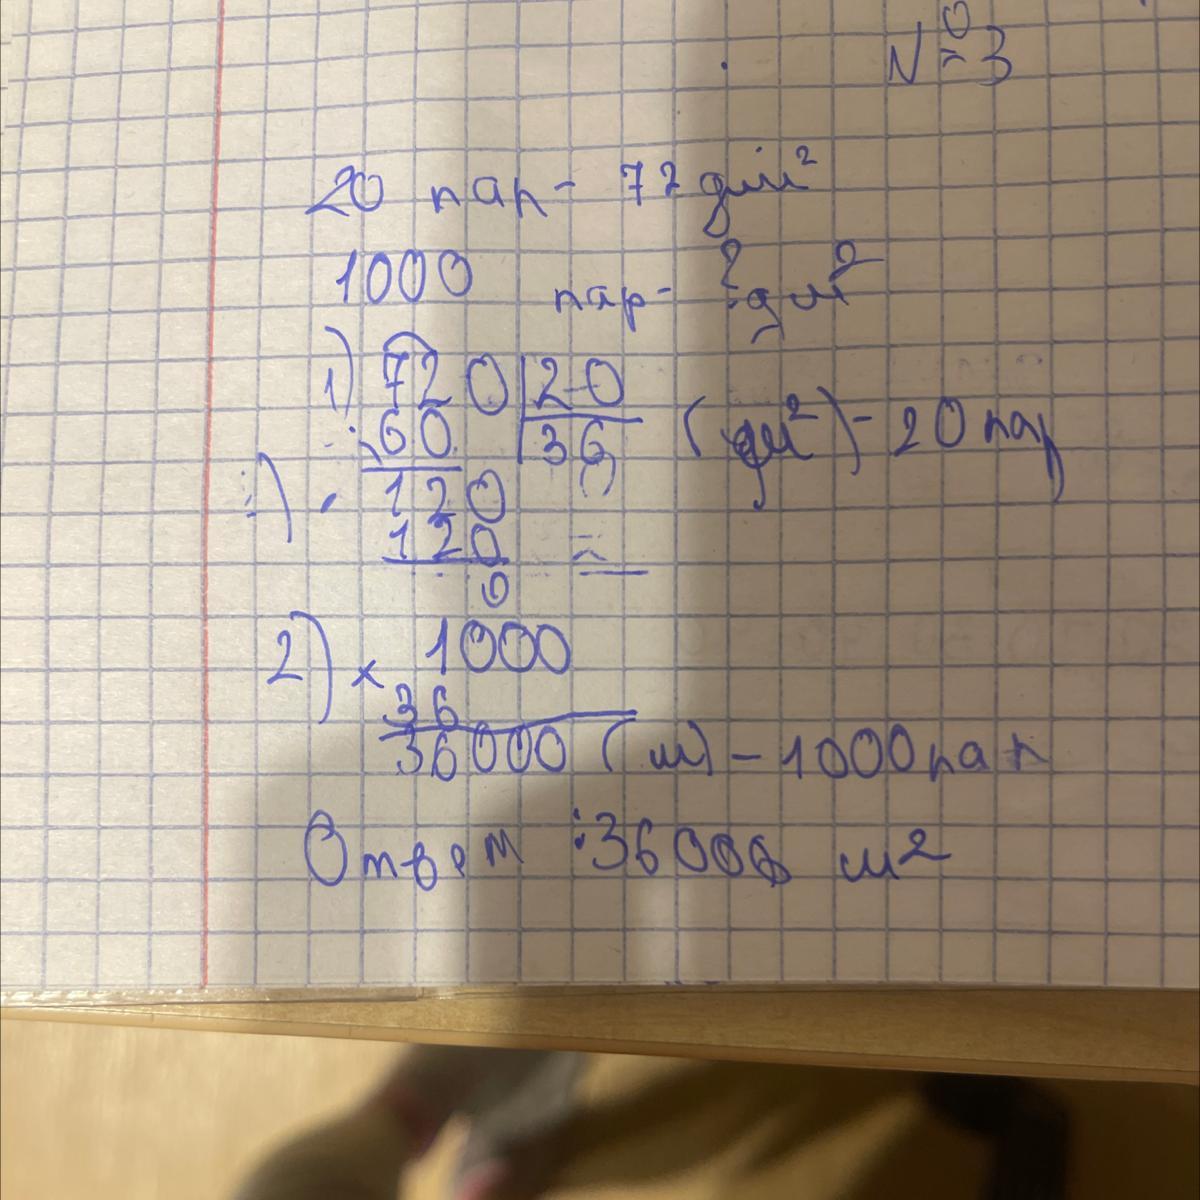 №3
20 пар - 72 дм²
1000 пар - ? дм²
1) 720 | 20
60 | 36 (дм²) - 20 пар
120
120
0
2) × 1000
36
36000 (м) - 1000 пар
Ответ : 36000 м²